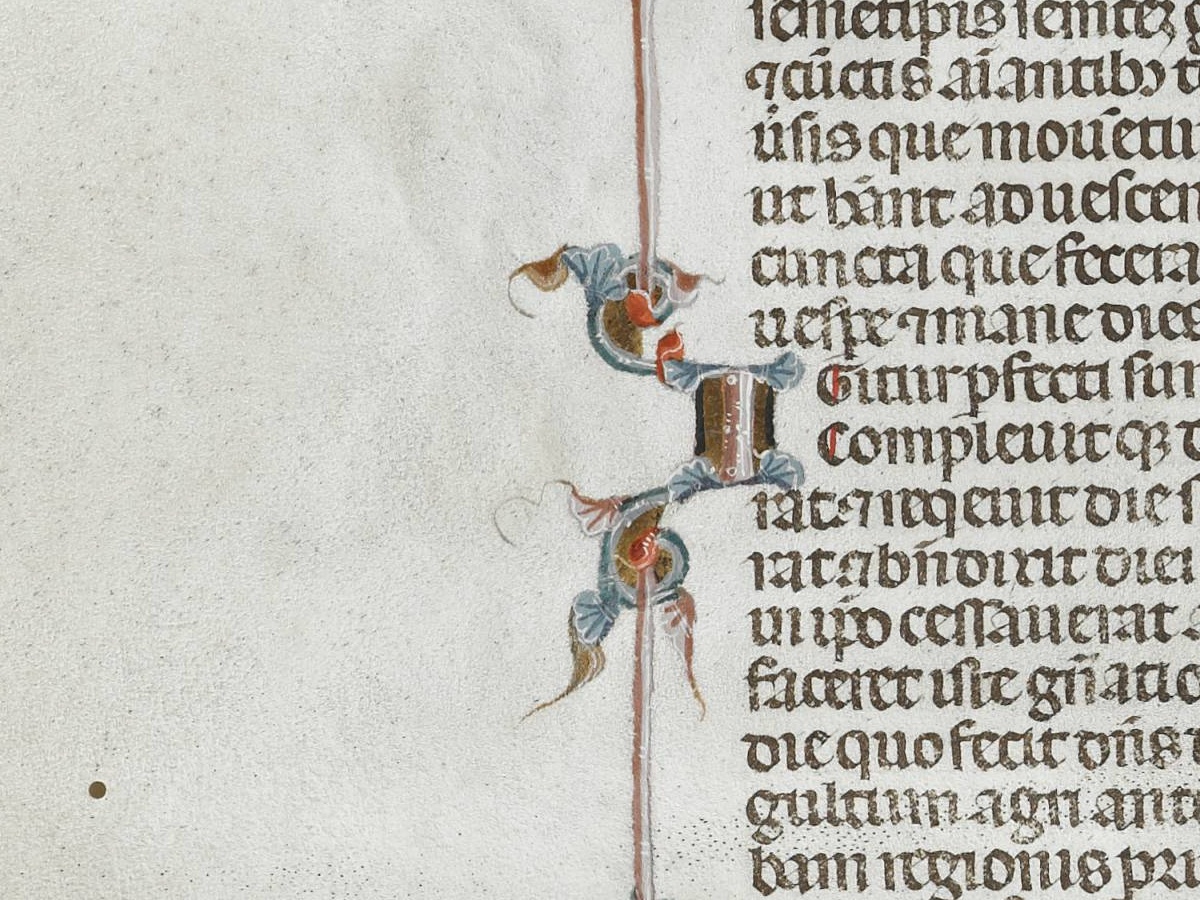 semetipis semētez
⁊ cūctis aīantibꝫ t
ūsis que mouētu
ut hānt ad uescen
cuncta que fecera
uespe ⁊ mane die
I Gitur pfecti sun
Compleuit qꝫ d
rat ⁊ reqeuit die s
rat ⁊ bn̄dixit diei
in ip̄o cessauerat
faceret iste gn̄atio
die quo fecit dn̄s
gultum agri ante
bam regionis pri